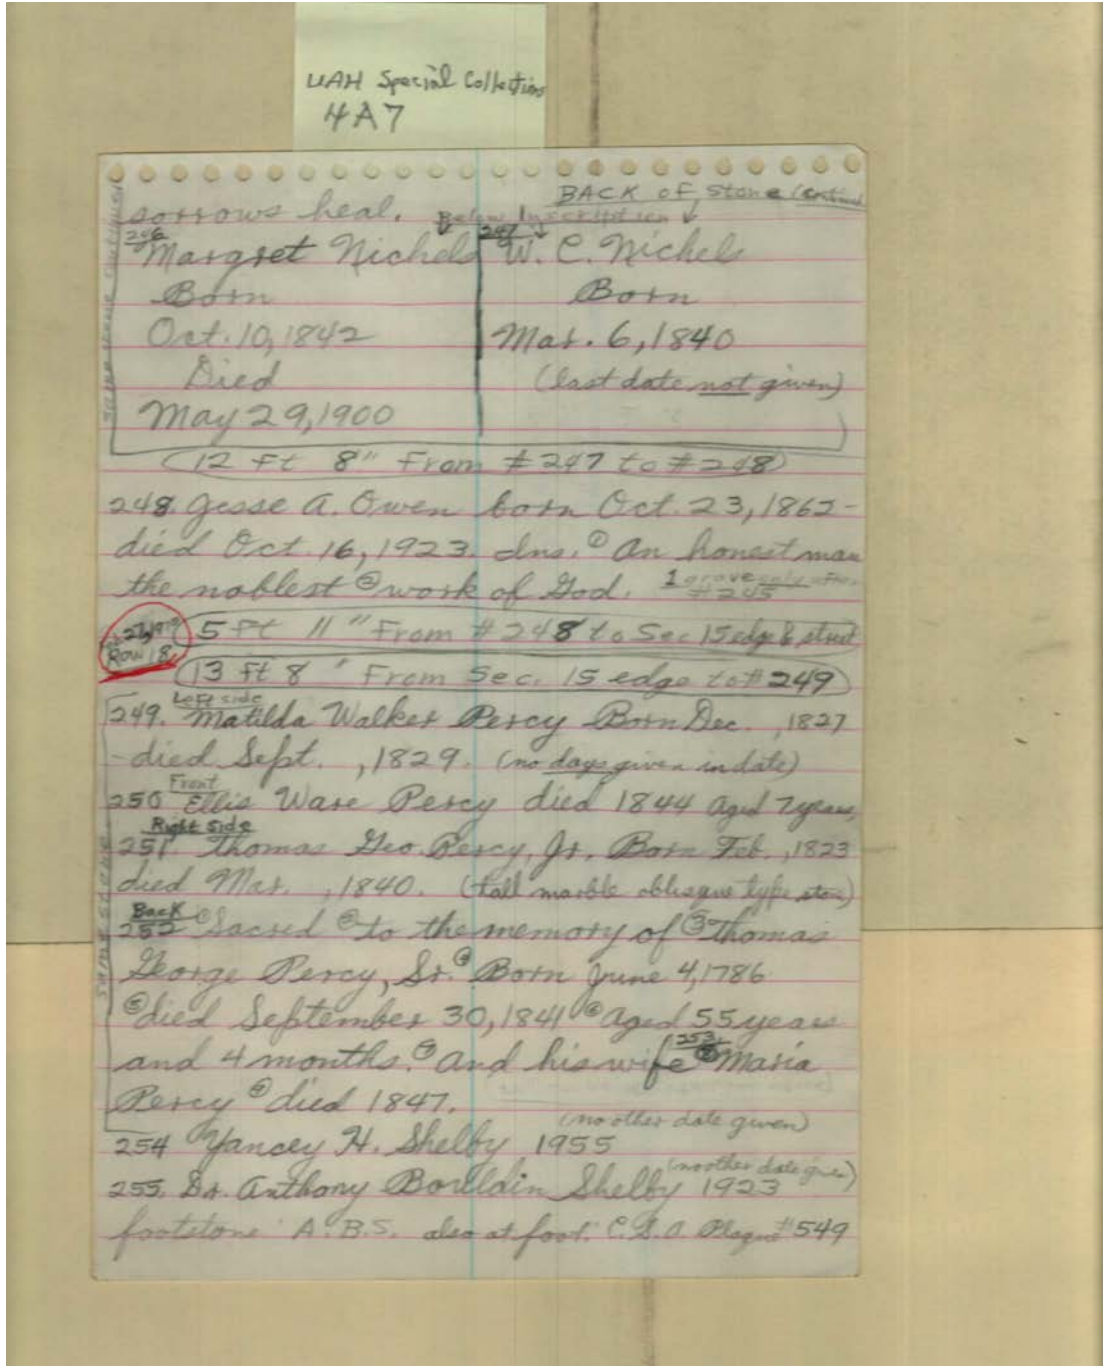 UAH Special Collections
4A7
BACK of Stone
sorrows heal. Below Inscription
246 247
Margret Nichels W. C. Nichels
Born Born
Oct. 10, 1842 Mar. 6, 1840
Died (last date not given)
May 29, 1900
12 Ft 8" From #247 to #248
248. Jesse A. Owen born Oct. 23, 1862-
died Oct. 16, 1923. Ins. ① An honest man
the noblest ② work of God. 1 grave only after #245
27, 1979 5 Ft 11" From #248 to Sec 15 edge & street
Row 18
13 Ft 8" From Sec. 15 edge to #249
Left side
249. Matilda Walker Percy Born Dec. , 1827
died Sept. , 1829. (no days given in date)
Front
250 Ellis Ware Percy died 1844 Aged 7 years
Right side
251. Thomas Geo. Percy, Jr. Born Feb. , 1823
died Mar. , 1840. (tall marble oblisque type stone)
Back
252 ① Sacred ② to the memory of ③ Thomas
George Percy, Sr. ④ Born June 4, 1786
⑤ died September 30, 1841 ⑥ Aged 55 years
253
and 4 months. ⑦ And his wife ⑧ Maria
Percy ⑨ died 1847.
(no other date given)
254 Yancey H. Shelby 1955
(no other date given)
255. Dr. Anthony Bouldin Shelby 1923
footstone A.B.S. also at foot: C.S.A. Plaque #549
SAME STONE